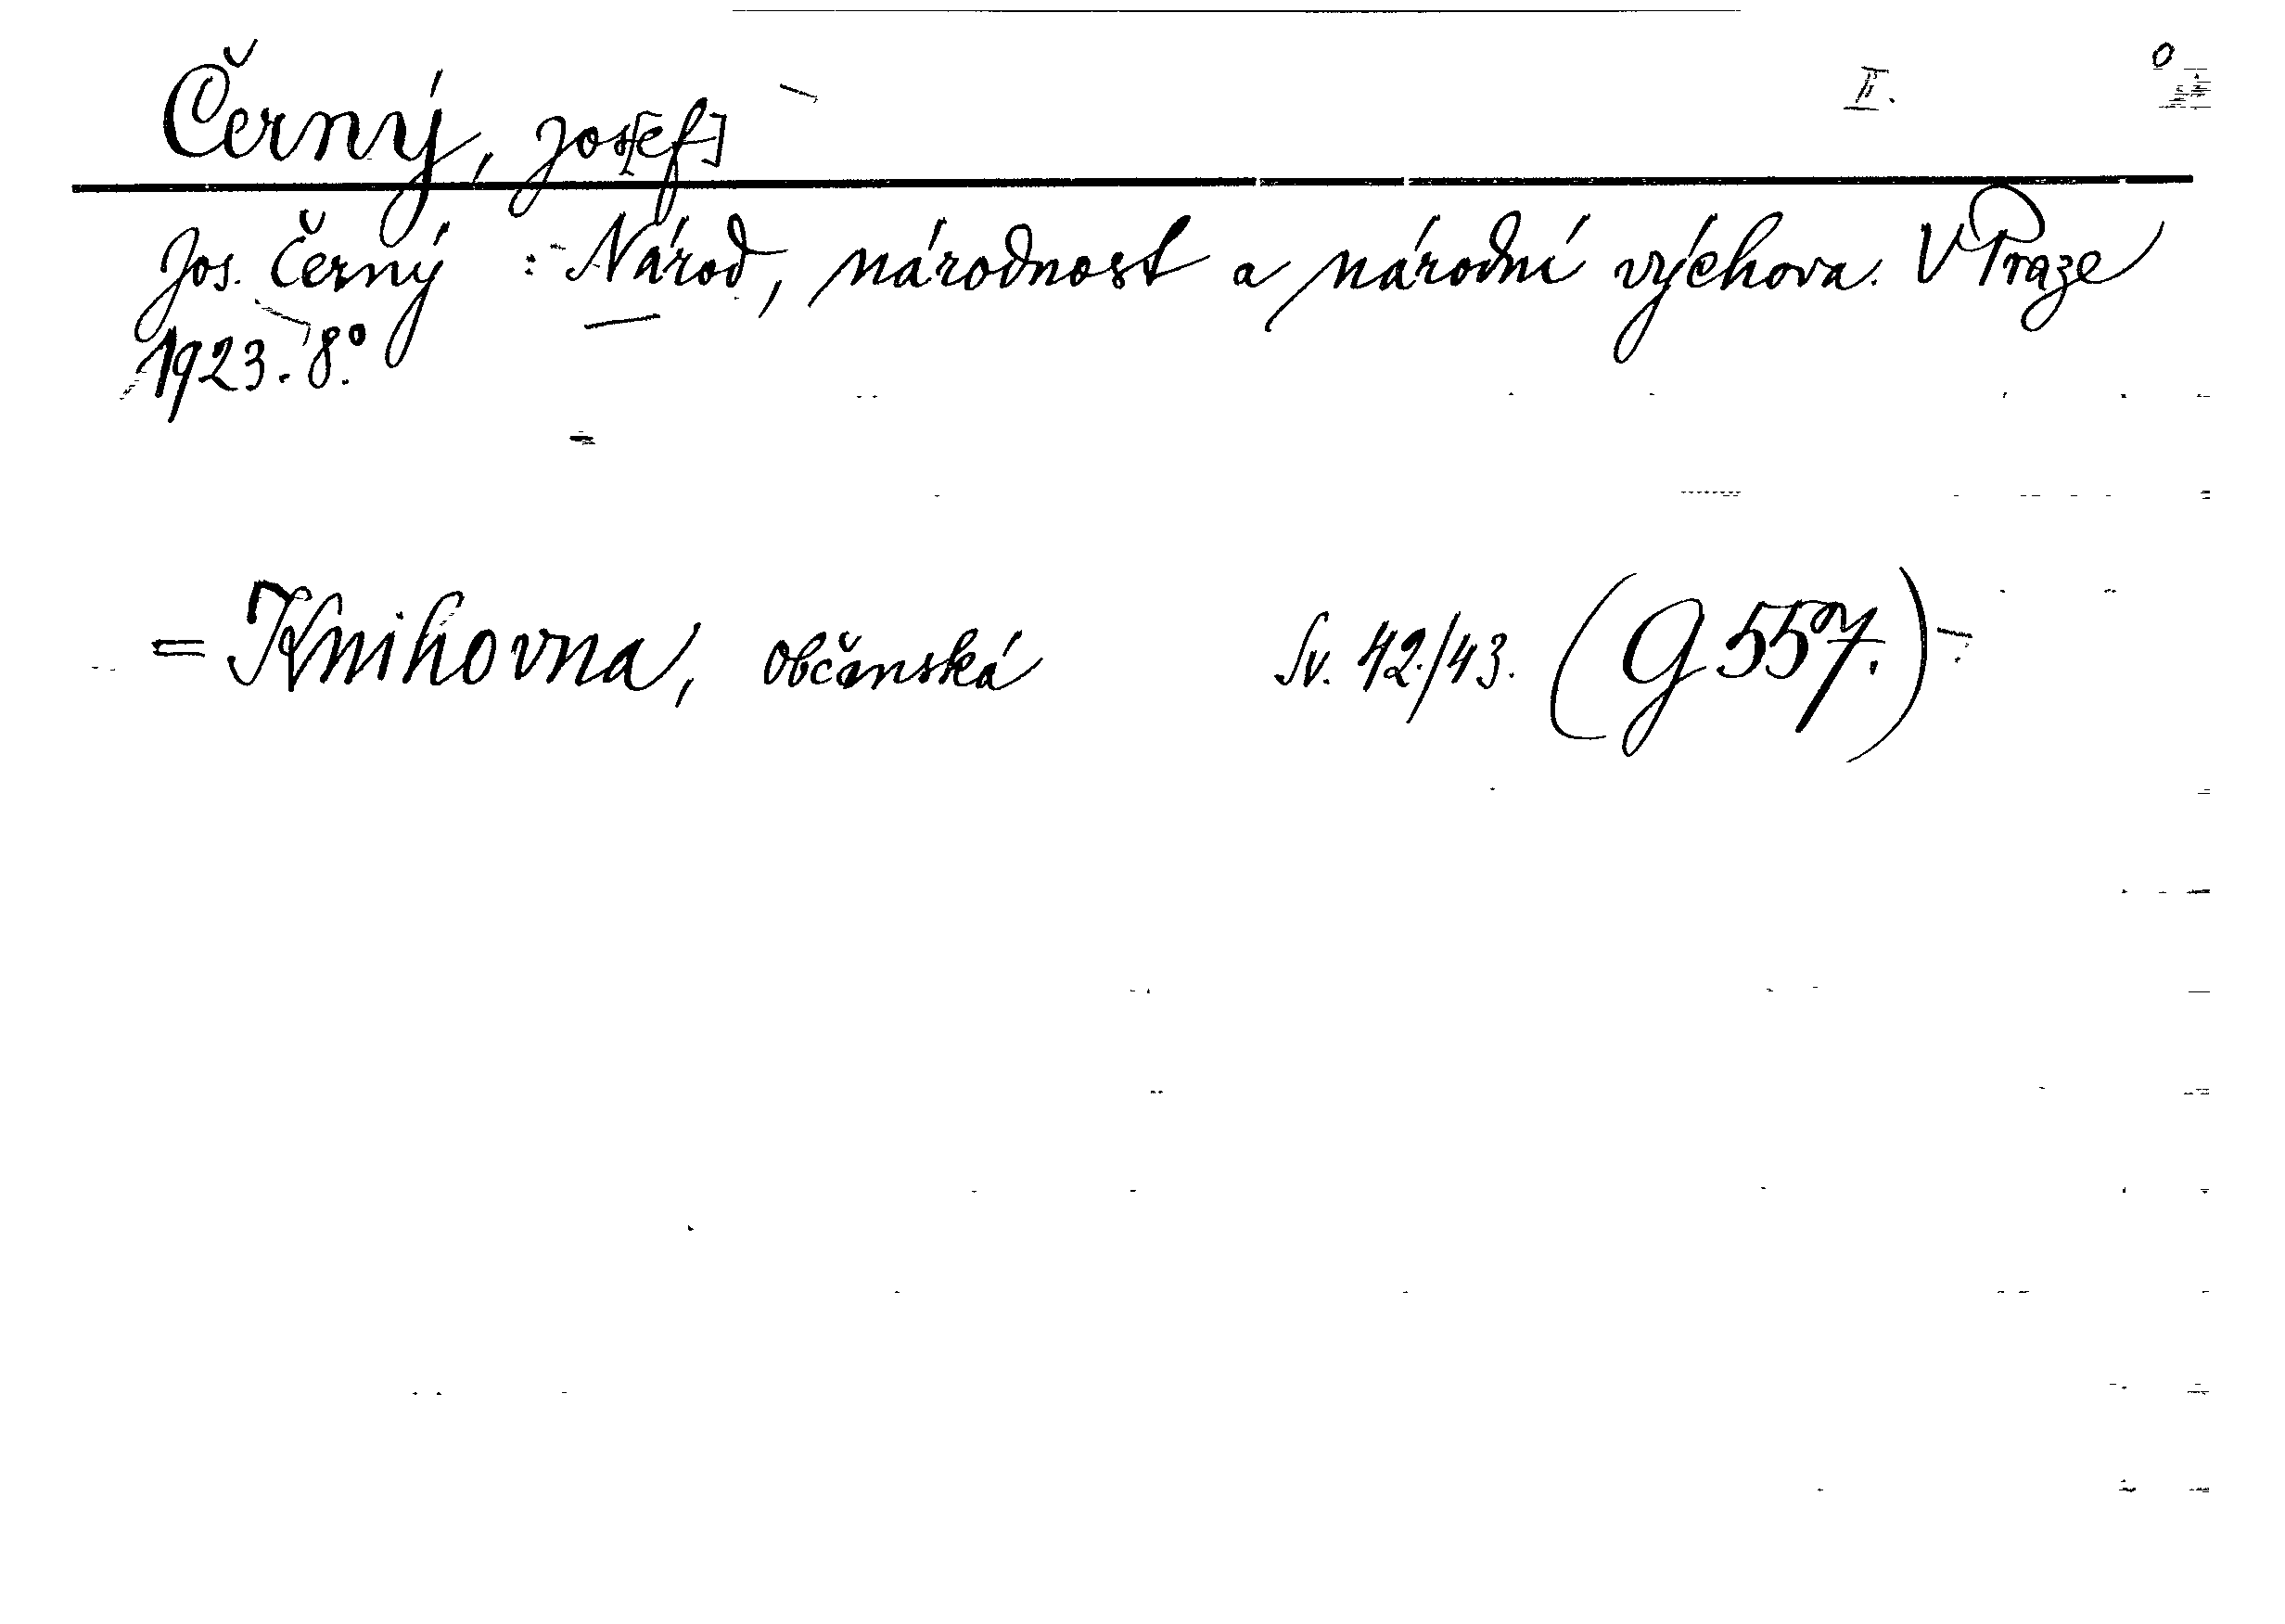 Černý, Jos[ef] II.
Jos. Černý : Národ, národnost a národní výchova. V Praze
1923. 8°.
= Knihovna, občanská Sv. 42./43. (G 557.)